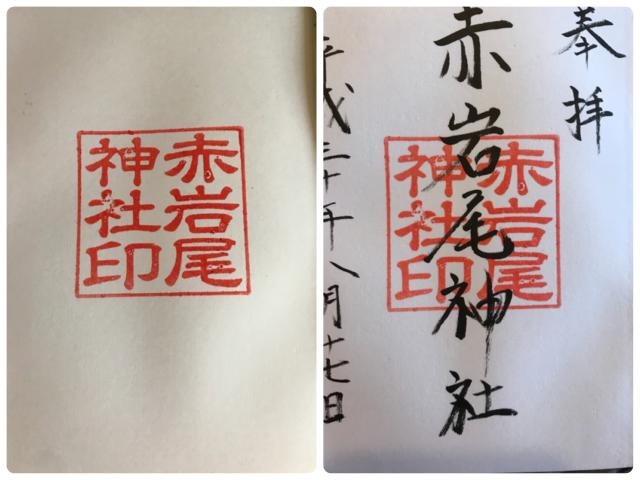 赤岩尾
神社印
奉拝
赤岩尾神社
平成三十年八月十七日
赤岩尾
神社印